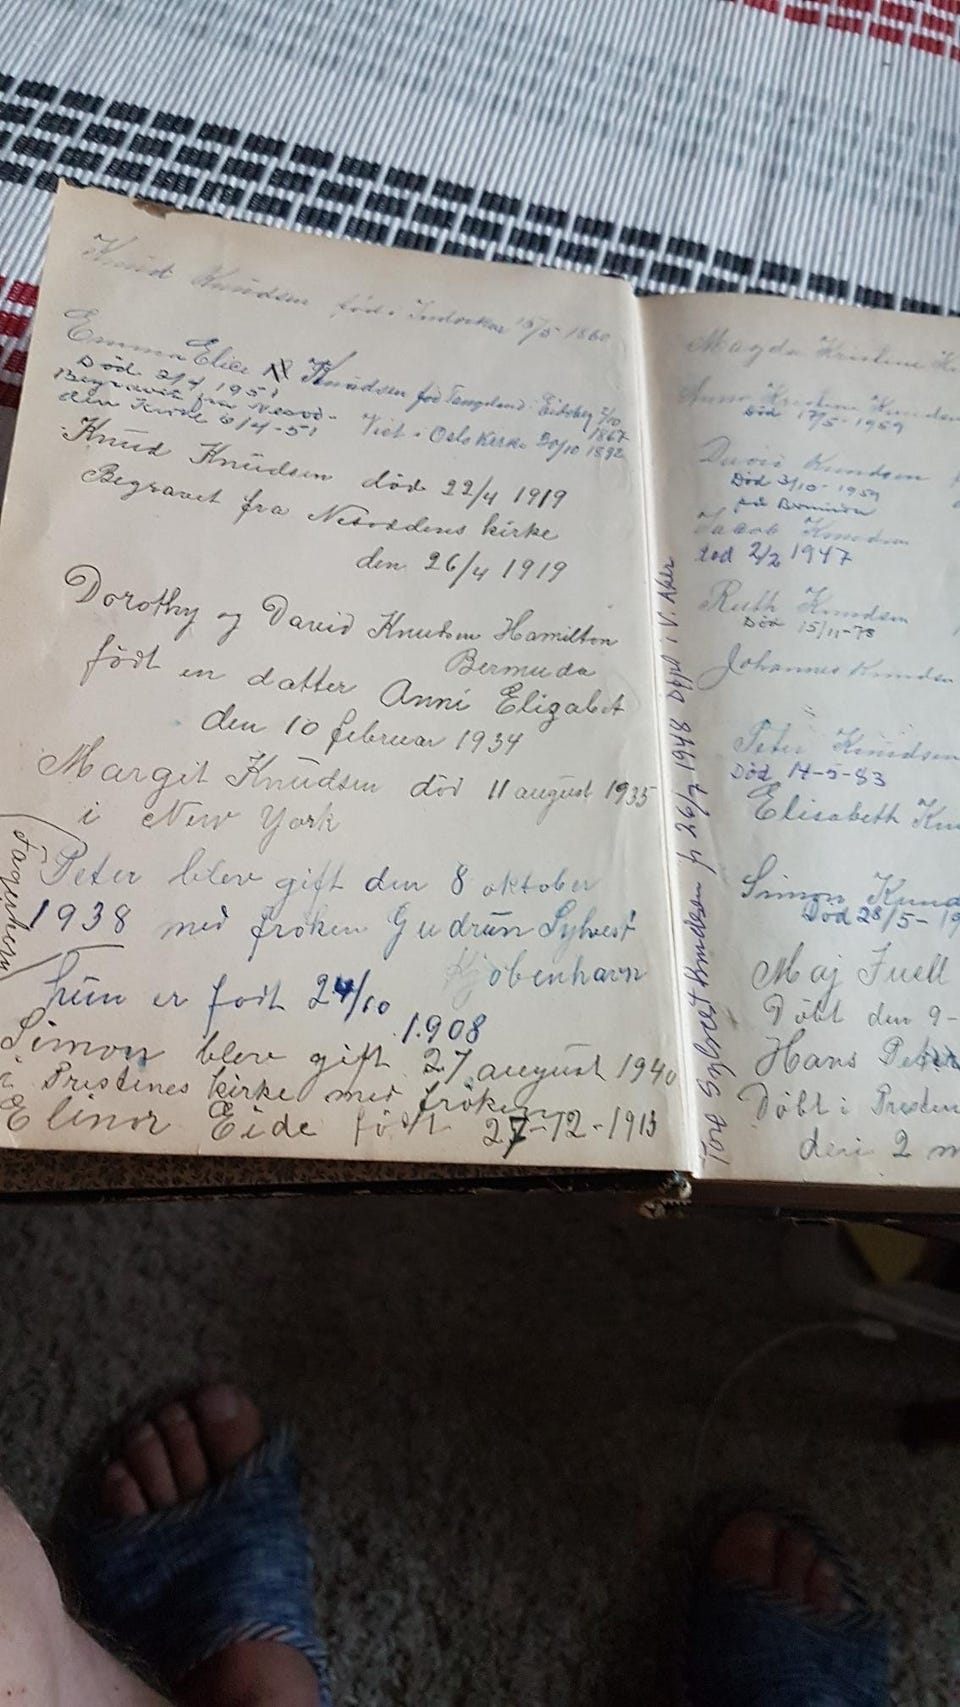 Knud Knudsen född i 15/5 1860
Emma Elise Knudsen fød Tangeland. Eidsberg 2/10
1867
Død 2/4 1951
Begravet fra Nesod-
den Kirke 6/4-51
Viet i Oslo Kirke 20/10 1892
Knud Knudsen död 22/4 1919
Begravet fra Nesoddens kirke
den 26/4 1919
Dorothy og David Knudsen Hamilton
Bermuda
födt en datter Anni Elizabet
den 10 februar 1934
Margit Knudsen död 11 august 1935
i New York
Peter blev gift den 8 oktober
1938 med fröken Gudrun Sylvest
Kjöbenhavn
Hun er födt 24/10
1908
Simon blev gift 27 august 1940
i Prestenes kirke med fröken
Elinor Eide födt 27-12-1913
Fagerheim
Tore Sylvest Knudsen f. 26/7 1948 Døpt i V. Aker
Magda Kristine
Anna Kristine Knudsen
Död 17/5-1959
David Knudsen
Død 3/10-1959
på Bermuda
Jacob Knudsen
död 2/2 1947
Ruth Knudsen
Död 15/11-78
Johannes Knudsen
Peter Knudsen
Død 14-5-83
Elisabeth
Simon
Død 28/5-19
Maj Juell
Döbt den 9-
Hans Peter
Döbt i
den 2